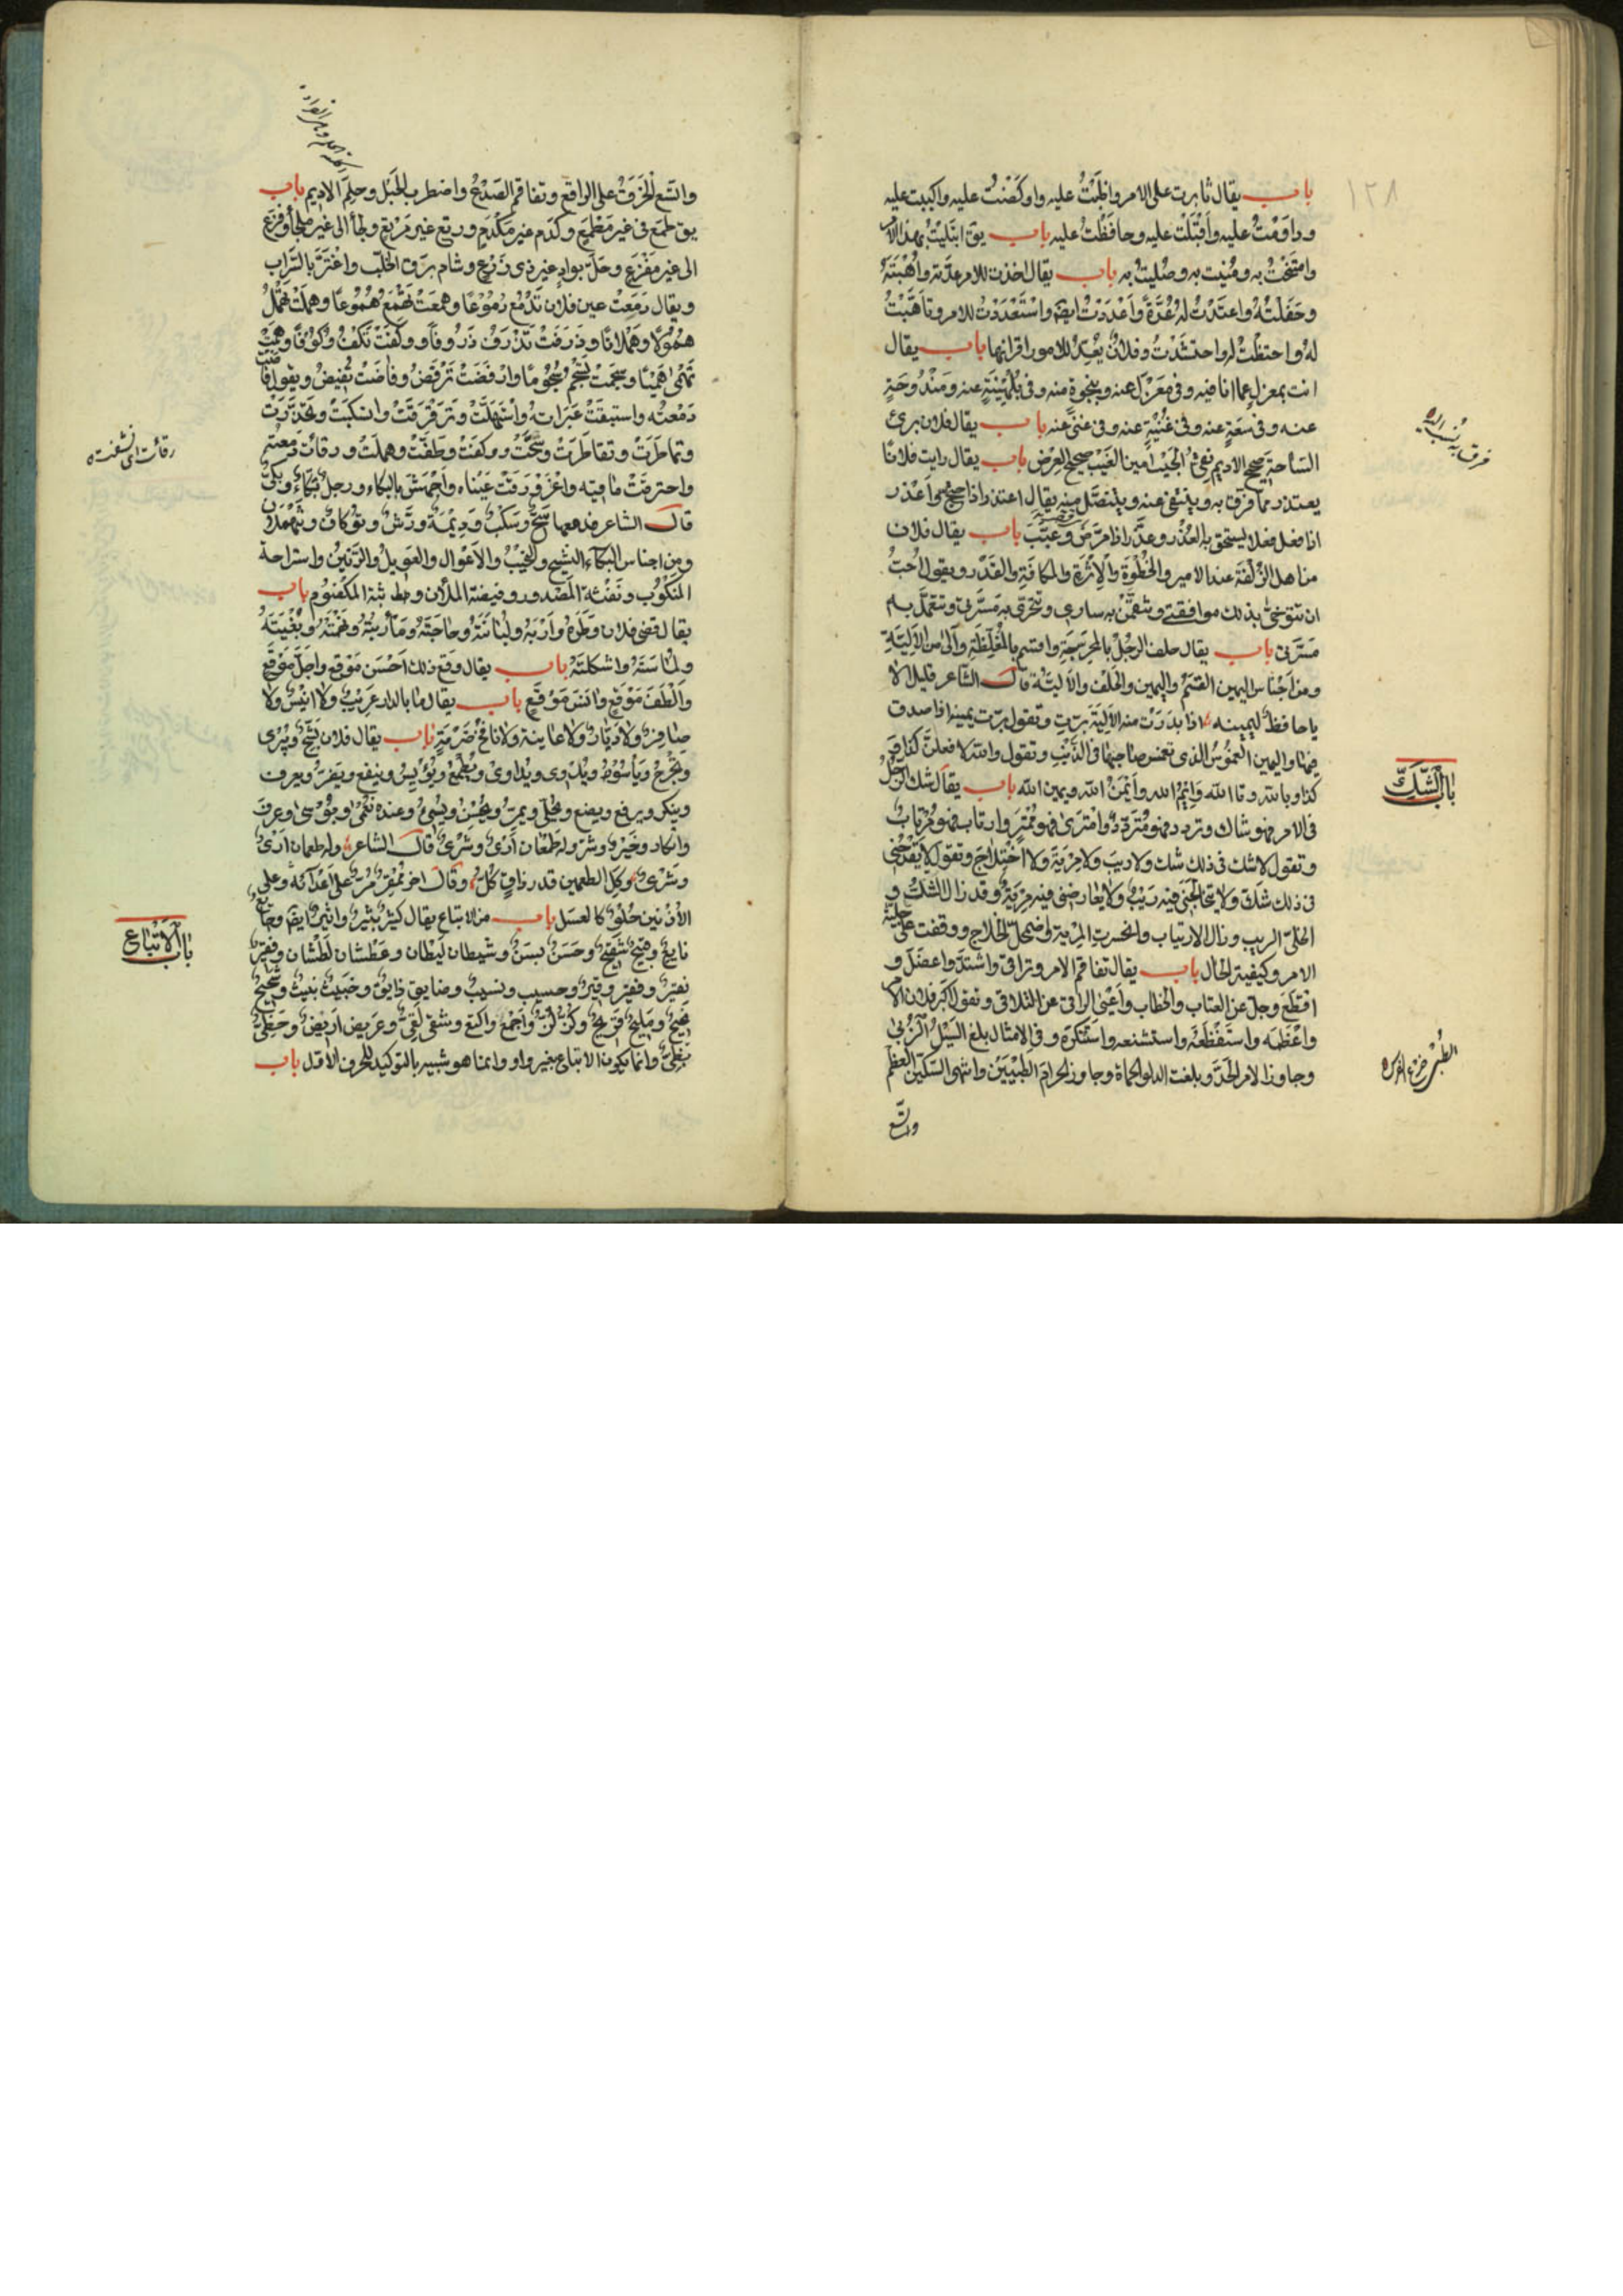 ١٢٨
باب يقال ثابرت على الامر وواظَبْتُ عليه واوكَضْتُ عليه واكببت عليه
وداوَمْتُ عليه وأقبَلْت عليه وحافَظْتُ عليه باب يق ابتَلِيتُ بهذا الامر
وامتُحِنْتُ به ومُنِيت به وصُلِيتُ به باب يقال اخذت للامر عدّته واُهْبَتَهُ
وحَفَلْتُهُ واعتَدْتُ لَهُ عُدَّةً وأعْدَدْتُ ايضا واسْتَعْدَدْتُ للامر وتأهَّبْتُ
لهُ واحتفلْتُ له واحتشَدْتُ وفلانٌ يُعِدُّ للامور اقرانها باب يقال
انت بمعزلٍ عما انا فيه وفى مَعْزلٍ عنه وبنجوةٍ منه وفى بُلَهْنِيَةٍ عنه ومَنْدُوحَةٍ
عنه وفى سَعَةٍ عنه وفى غُنْيَةٍ عنه وفى غنىً عنه باب يقال فلان برئ
السّاحة صحيح الاديم نقىّ الجَيْب امين الغَيْب صحيح العِرْض باب يقال رايت فلانًا
يعتذر مما قرف به وينتفى عنه ويتنصّل منه يقال اعتذر اذا صحّ واعْذر
اذا فعل فعلا يستحق به العُذْر وعذَّر اذا مرّضَ وعَبَّبَ باب يقال فلان
من اهل الزُّلْفَة عند الامير والحُظْوَة والاُثْرَة والمكانة والقَدْر ويقول اُحبّ
ان تتوخى بذلك موافقتى وتتيمّن به سارى وتتحرى به مَسَرّتى وتتعمّد به
مسَرّتى باب يقال حلف الرجُلُ بالمُحرِجَة واقسم بالمُغلّظةِ وآلى من الاَلِيَّةِ
ومن أجْناس اليمين القَسَمُ واليمين والحَلْف والاَليّة قال الشّاعر قليل الالا
يا حافظٌ ليمينه اذا بدَرَتْ منه الاَلِيّة برّتِ وتقول برّت يمينه اذا صدق
فيها واليمين الغَمُوسُ الذى تغمس صاحبها فى الذنب وتقول والله لا فعلنّ كذا و
كذا وبالله وتالله وَايْمُ الله وأيْمَنُ الله ويمين الله باب يقال شك الرّجلُ
فى الامر فهو شاك وتردد فهو مُتَردّدٌ وامْتَرَىٰ فهو مُمْتَرٍ وارتاب فهو مُرْتابٌ
وتقول لا شك فى ذلك شك ولا ريبَ ولا مِرْيَةَ ولا اخْتِلاجَ وتقول لا يَقْدَحُنى
فى ذلك شكّ ولا يتخالجنى فيه رَيْبٌ ولا يُعارضنى فيه مِرْيَةٌ وقد زال الشكُّ و
انجلى الريب وزال الارتياب وانحسرت المِرْية واضمحلّ الخلاج ووقفت على جليّة
الامر وكيفية الحال باب يقال تفاقم الامر وتراقى واشتدّ واعضَلَ و
افظَعَ وجلّ عن العتاب والخطاب وأعْيَى الراقى عن التلاقى وتقول اكْبَرَ فلان الامر
واعْظَمه واستَفْظَعَهُ واستشنعه واستَنْكَرَه وفى الامثال بلغ السَيْلُ الزُّبى
وجاوز الامر الحَدَّ وبلغت الدلو الحماة وجاوز الحزام الطُبْيَيْن وانتهى السّكّين العظم
واتسع
قرف به نسب اليه
باب الشَّكِّ
الطُبْىُ
واتّسع الخَرْقُ على الراقع وتفاقم الصَدْعُ واضطرب الحَبْل وحلِمَ الاديم باب
يق طمَعَ فى غير مَطْمَعٍ وكدَم غير مَكْدَمٍ ورتع غير مَرْتعٍ ولجأ الى غير ملجأ وفزع
الى غير مَفْزَعٍ وحَلّ بوادٍ غير ذى زَرْعٍ وشام برق الخلّب واغْتَرَّ بالسَّراب
ويقال دَمَعَتْ عين فلان تَدْمَعُ دُمُوعًا وهمَعَتْ تَهْمَعُ هُمُوعًا وهمَلَتْ تَهْمُلُ
هُمُولًا وهَمَلانًا وذرَفَتْ تَذْرفُ ذَرُوفًا ووكفَتْ تَكِفُ وُكُوفًا وهَمَتْ
تَهْمى هَمْيًا وسجَمَتْ تَسْجُمُ سُجُومًا وارْفَضَّتْ تَرْفَضُّ وفاضَتْ تَفِيضُ ويقول فاضت
دَمْعتُه واستبقَتْ عَبَراتُه واسْتَهَلَّتْ وتَرَقْرَقَتْ وانسكبَتْ وتحَدَّرَتْ
وتماطَرَتْ وتقاطَرَتْ وسَحَّتْ ووكفَتْ ووَطَفَتْ وهملَتْ ورقأتْ دمعتهُ
واحترقَتْ مآقيه واغْرَوْرَقَتْ عَيْناه وأجْهَشَ بالبكاء ورجلٌ بَكّاءٌ وبَكىٌّ
قال الشاعر فدمعها سَحٌّ وسَكْبٌ ودِيْمَةٌ ورَشٌّ وتَوْكافٌ وتَنْهَمِلان
ومن اجناس البكاء النشيج والنحِيْبُ والاَعْوال والعَوِيلُ والرَّنينُ واستراحة
المَنْكُوْب ونَفْثة المَصْدور وفيضة الملآن وبثة المكْتُوم باب
يقال قضى فلان وطرَهُ وأرَبَهُ ولُبانَتَهُ وحاجَتَهُ ومأرُبَتُهُ ونَهْمَتَهُ وبُغْيَتَهُ
ولُماسَتَهُ واشكلتَهُ باب يقال وقع ذلك احْسَنَ مَوْقع واجلّ مَوْقَع
وألْطَفَ مَوْقع وانْفسَ مَوْقَع باب يقال ما بالدار عَرِيْبٌ ولا انِيْسٌ ولا
صافِرٌ ولا دَيّارٌ ولا عاينة ولا نافخُ ضَرَمَةٍ باب يقال فلان يَشُجُّ ويُبْرى
ويَجْرَحُ ويَأسُو ويُدْوِى ويُداوى ويُطْمِعُ ويُؤيِسُ وينفع ويَضُرُّ ويعرف
وينكر ويرفع ويضع ويُحلى ويُمِرُّ ويُحْسِنُ ويُسِئُ وعنده نُعْمىٰ وبُؤْسى وعُرف
وانكار وخَيْرٌ وشرّ وله طَعْمان أرْىٌ وشَرْىٌ قال الشاعر وله طعمان ارْىٌ
وشَرْىٌ وكل الطعمين قد ذاق كُلّ وقال اخر مُمْقِرٌ مُرٌّ على أعْدآئه وعلى
الاَدْنين حُلْوٌ كالعسَل باب من الاتباع يقال كثِيرٌ بثيرٌ واثيرٌ ايضا وجائعٌ
نايعٌ وقبيح شَقِيحٌ وحَسَنٌ بسَنٌ وشَيْطان لَيْطان وعَطْشان لَطْشان وفقير
نقيرٌ وفقير وقيرٌ وحسيب ونسيبٌ وضايق ذايق وخَبيثٌ نبيثٌ وشَحِيحٌ
نَحِيحٌ ومَلِيحٌ قَزِيحٌ وكَزٌّ لَزٌّ واَجْمَعُ واكتع وشقى لَقِىٌّ وعَريض اَريضٌ وحَفِىٌّ
وانما يكون الاتباع بغير واو وانما هو شبيه بالتوكيد للحرف الاوّل باب
رقأت اى نشفت
باب الاَتْبَاع